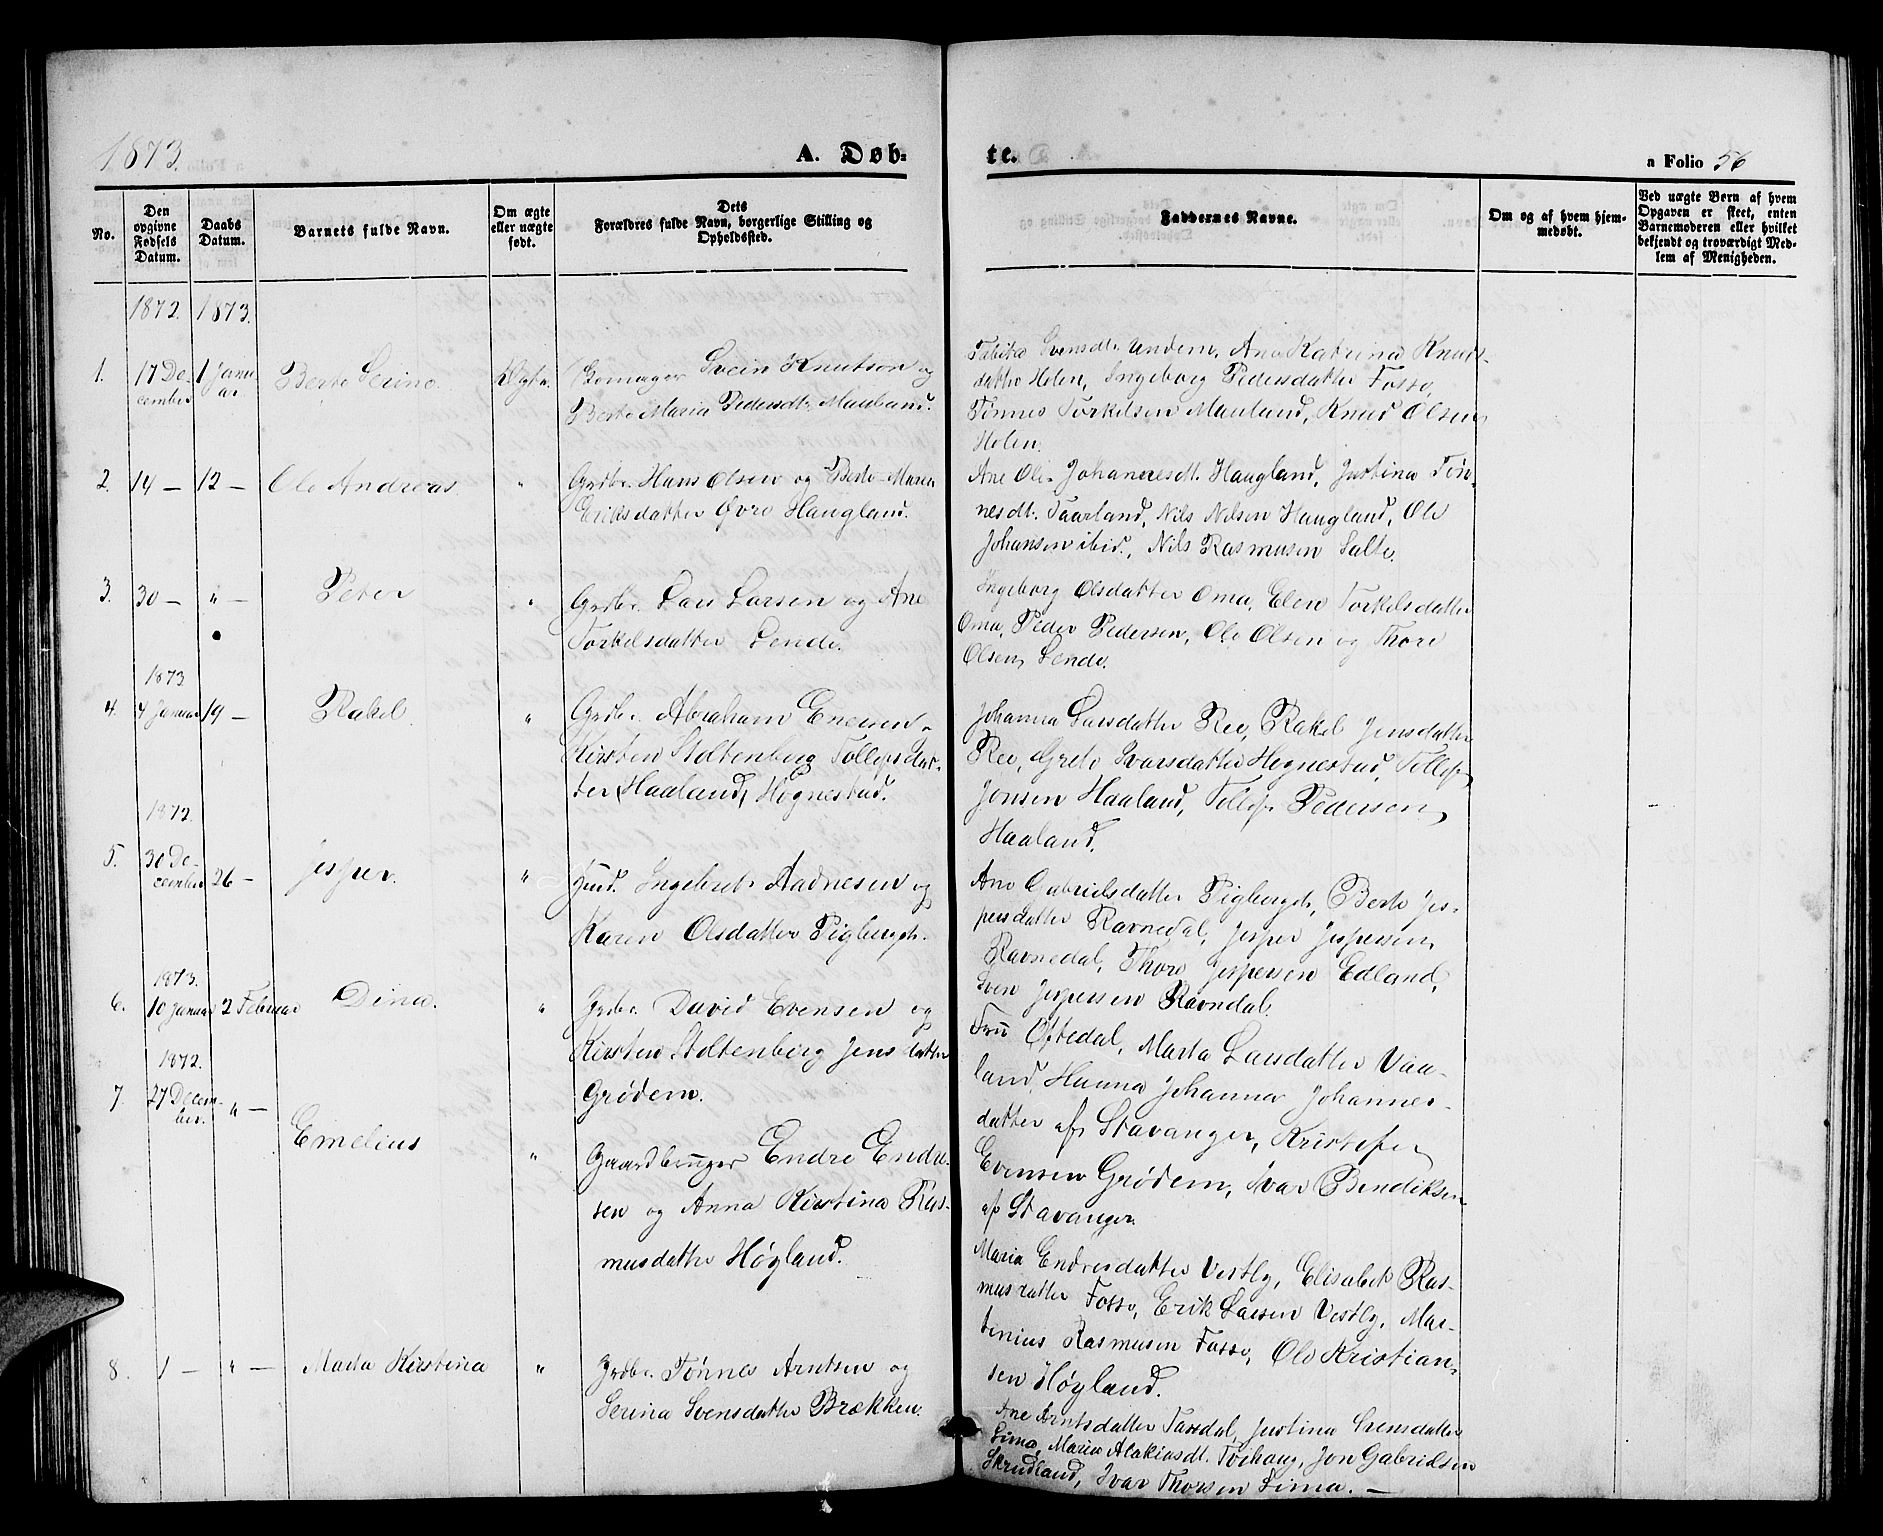 1873.
A. Døb-
te.
a Folio 56
No.
Den opgivne Fødsels Datum.
Daabs Datum.
Barnets fulde Navn.
Om ægte eller uægte født.
Dets Forældres fulde Navn, borgerlige Stilling og Opholdssted.
Faddernes Navne.
Om og af hvem hjemmedøbt.
Ved uægte Børn af hvem Opgaven er skeet, enten Barnemoderen eller hvilket bekjendt og troværdigt Medlem af Menigheden.
1872. 1873.
1. 17 De-
cember
1 Janu
ar.
Berte Serine.
Ægte.
Svein Knutson og
Berte Maria Pedersdt. Mauland.
Tabita Svensdt. Undem, Ane Katrina Knuds-
datter Helen, Ingeborg Pedersdatter Fosse,
Tønnes Torkelsen Mauland, Knud Olsen
Helen.
2. 14 — 12 —
Ole Andreas
"
Grdbr. Hans Olsen og Berte Maren
Eriksdatter Øvre Haugland.
Ane Oli. Johannesdt. Haugland, Justina Tøn-
nesdt. Taarland, Nils Nilsen Haugland, Ole
Johansen ibid., Nils Rasmusen Salte.
3. 30 — " —
Peter
"
Grdbr. Lars Larsen og Ane
Torkelsdatter Lende.
Ingeborg Olsdatter Oma, Elen Torkelsdatter
Oma, Peder Pedersen, Ole Olsen og Thore
Olsen Lende.
1873
4. 4 Januar 19 —
Rakel.
"
Grdbr. Abraham Enersen
Kirsten Stoltenberg Tollefsdat-
ter (Haaland) Høgnestad.
Johanna Larsdatter Ree, Rakel Jensdatter
Ree, Grete Ivarsdatter Høgnestad, Tollef
Jonsen Haaland, Tollef Pedersen
Haaland.
1872.
5. 30 De-
cember 26 —
Jesper.
"
Ingebret Aadnesen og
Karen Olsdatter Pigberget.
Ane Gabrielsdatter Pigberget, Berte Jes-
persdatter Ravnedal, Jesper Jespersen
Ravnedal, Thore Jespersen Edland,
Sven Jespersen Ravndal.
1873.
6. 10 Januar 2 Februar
Dina.
"
Grdbr. David Evensen og
Kirsten Stoltenberg Jensdatter
Grødem.
Fru Oftedal, Marta Larsdatter Vaa-
land, Hanna Johanna Johannes-
datter af Stavanger, Kristofer
Evensen Grødem, Ivar Bendiksen
af Stavanger
1872.
7. 27 Decem-
ber. " —
Emelius
"
Gaardbruger Endre Endre-
sen og Anna Kirstina Ras-
musdatter Høyland.
Maria Endresdatter Vestly, Elisabet Ras-
musdatter Fosse, Erik Larsen Vestly, Mar-
tinius Rasmusen Fosse, Ole Kristian-
sen Høyland.
8. 1 — " —
Marta Kirstina
"
Grdbr. Tønnes Arntsen og
Serina Svensdatter Brækken.
Ane Arntsdatter Tarldal, Justina Svensdatter
Lima, Maria Malakiasdt. Torhaug, Jon Gabrielsen
Skrudland, Ivar Thorsen Lima. —